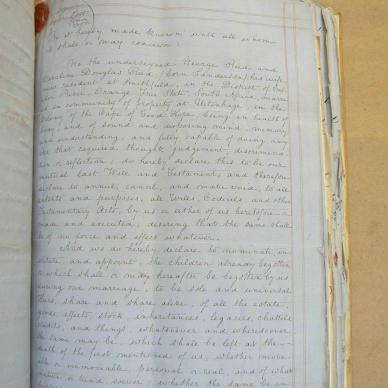 it hereby made known with all whom
it shall or may concern:
We the undersigned George
Caroline Douglas (born Sanderson) his wife,
resident at in the District of
River, Orange Free State, South Africa,
in community of property at Uitenhage, in the
Colony of the Cape of Good Hope, being in health of
body, and of sound and disposing mind, memory,
and understanding, and fully capable of doing any
act that required thought, judgement, discrimina-
tion or reflection, do hereby declare this to be our
mutual last Will and Testament, and therefore
declare to annul, cancel, and make void, to all
intents and purposes, all Wills, Codicils, and other
Testamentary Acts, by us or either of us heretofore
made and executed, desiring that the same shall
be of no force and effect whatever.
And we do hereby declare to nominate, in-
stitute, and appoint, the children already begotten
or which shall or may hereafter be begotten by us
during our marriage, to be sole and universal
Heirs, share and share alike, of all the estate,
goods, effects, stock, inheritances, legacies, chattels
credits, and things, whatsoever and wheresoever
the same may be, which shall be left at the
death of the first mentioned of us, whether mova-
ble or immovable, personal or real, and of what
nature or kind, soever; whether the same be in